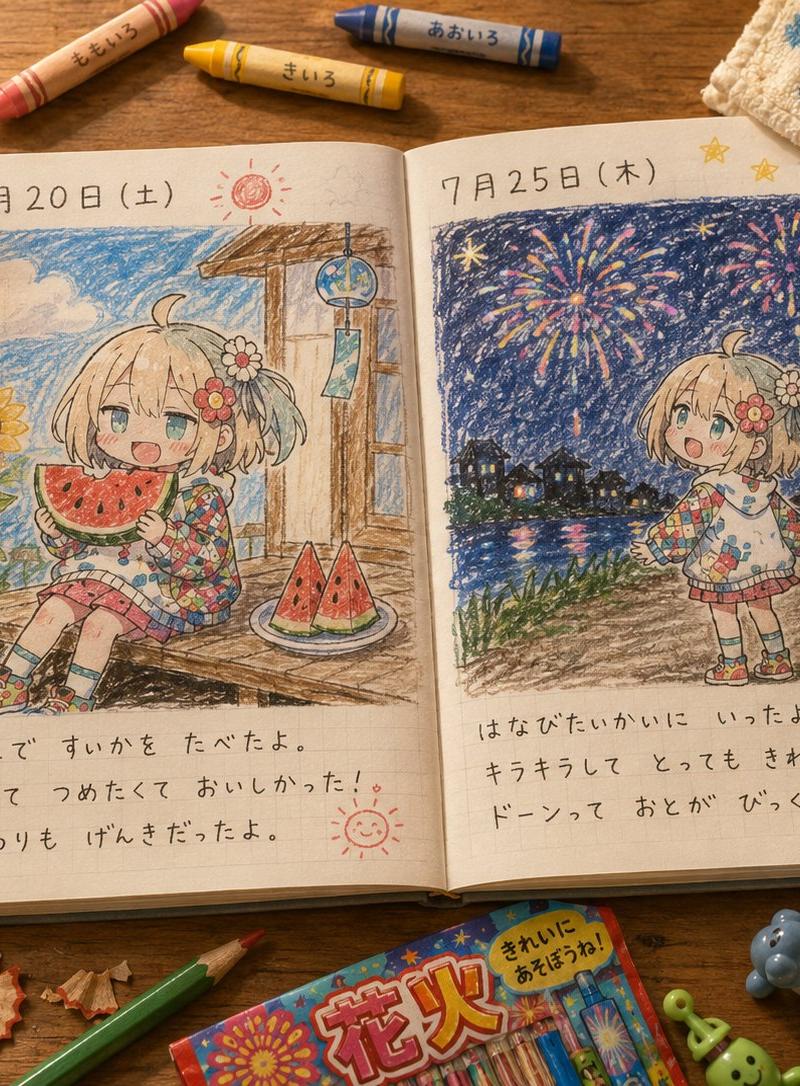 ももいろ
きいろ
あおいろ
月20日(土)
で すいかを たべたよ。
て つめたくて おいしかった!
りも げんきだったよ。
7月25日(木)
はなびたいかいに いったよ
キラキラして とっても きれ
ドーンって おとが びっく
きれいに
あそぼうね!
花火